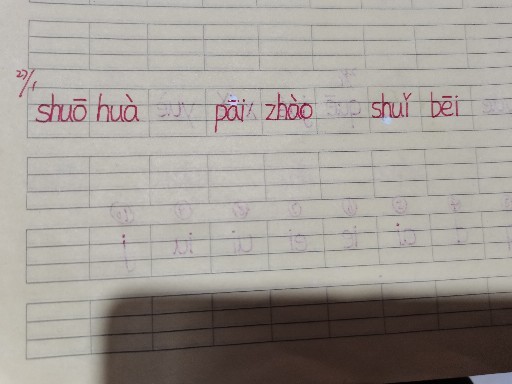 27/1
shuō huà pāi zhào shuǐ bēi
j